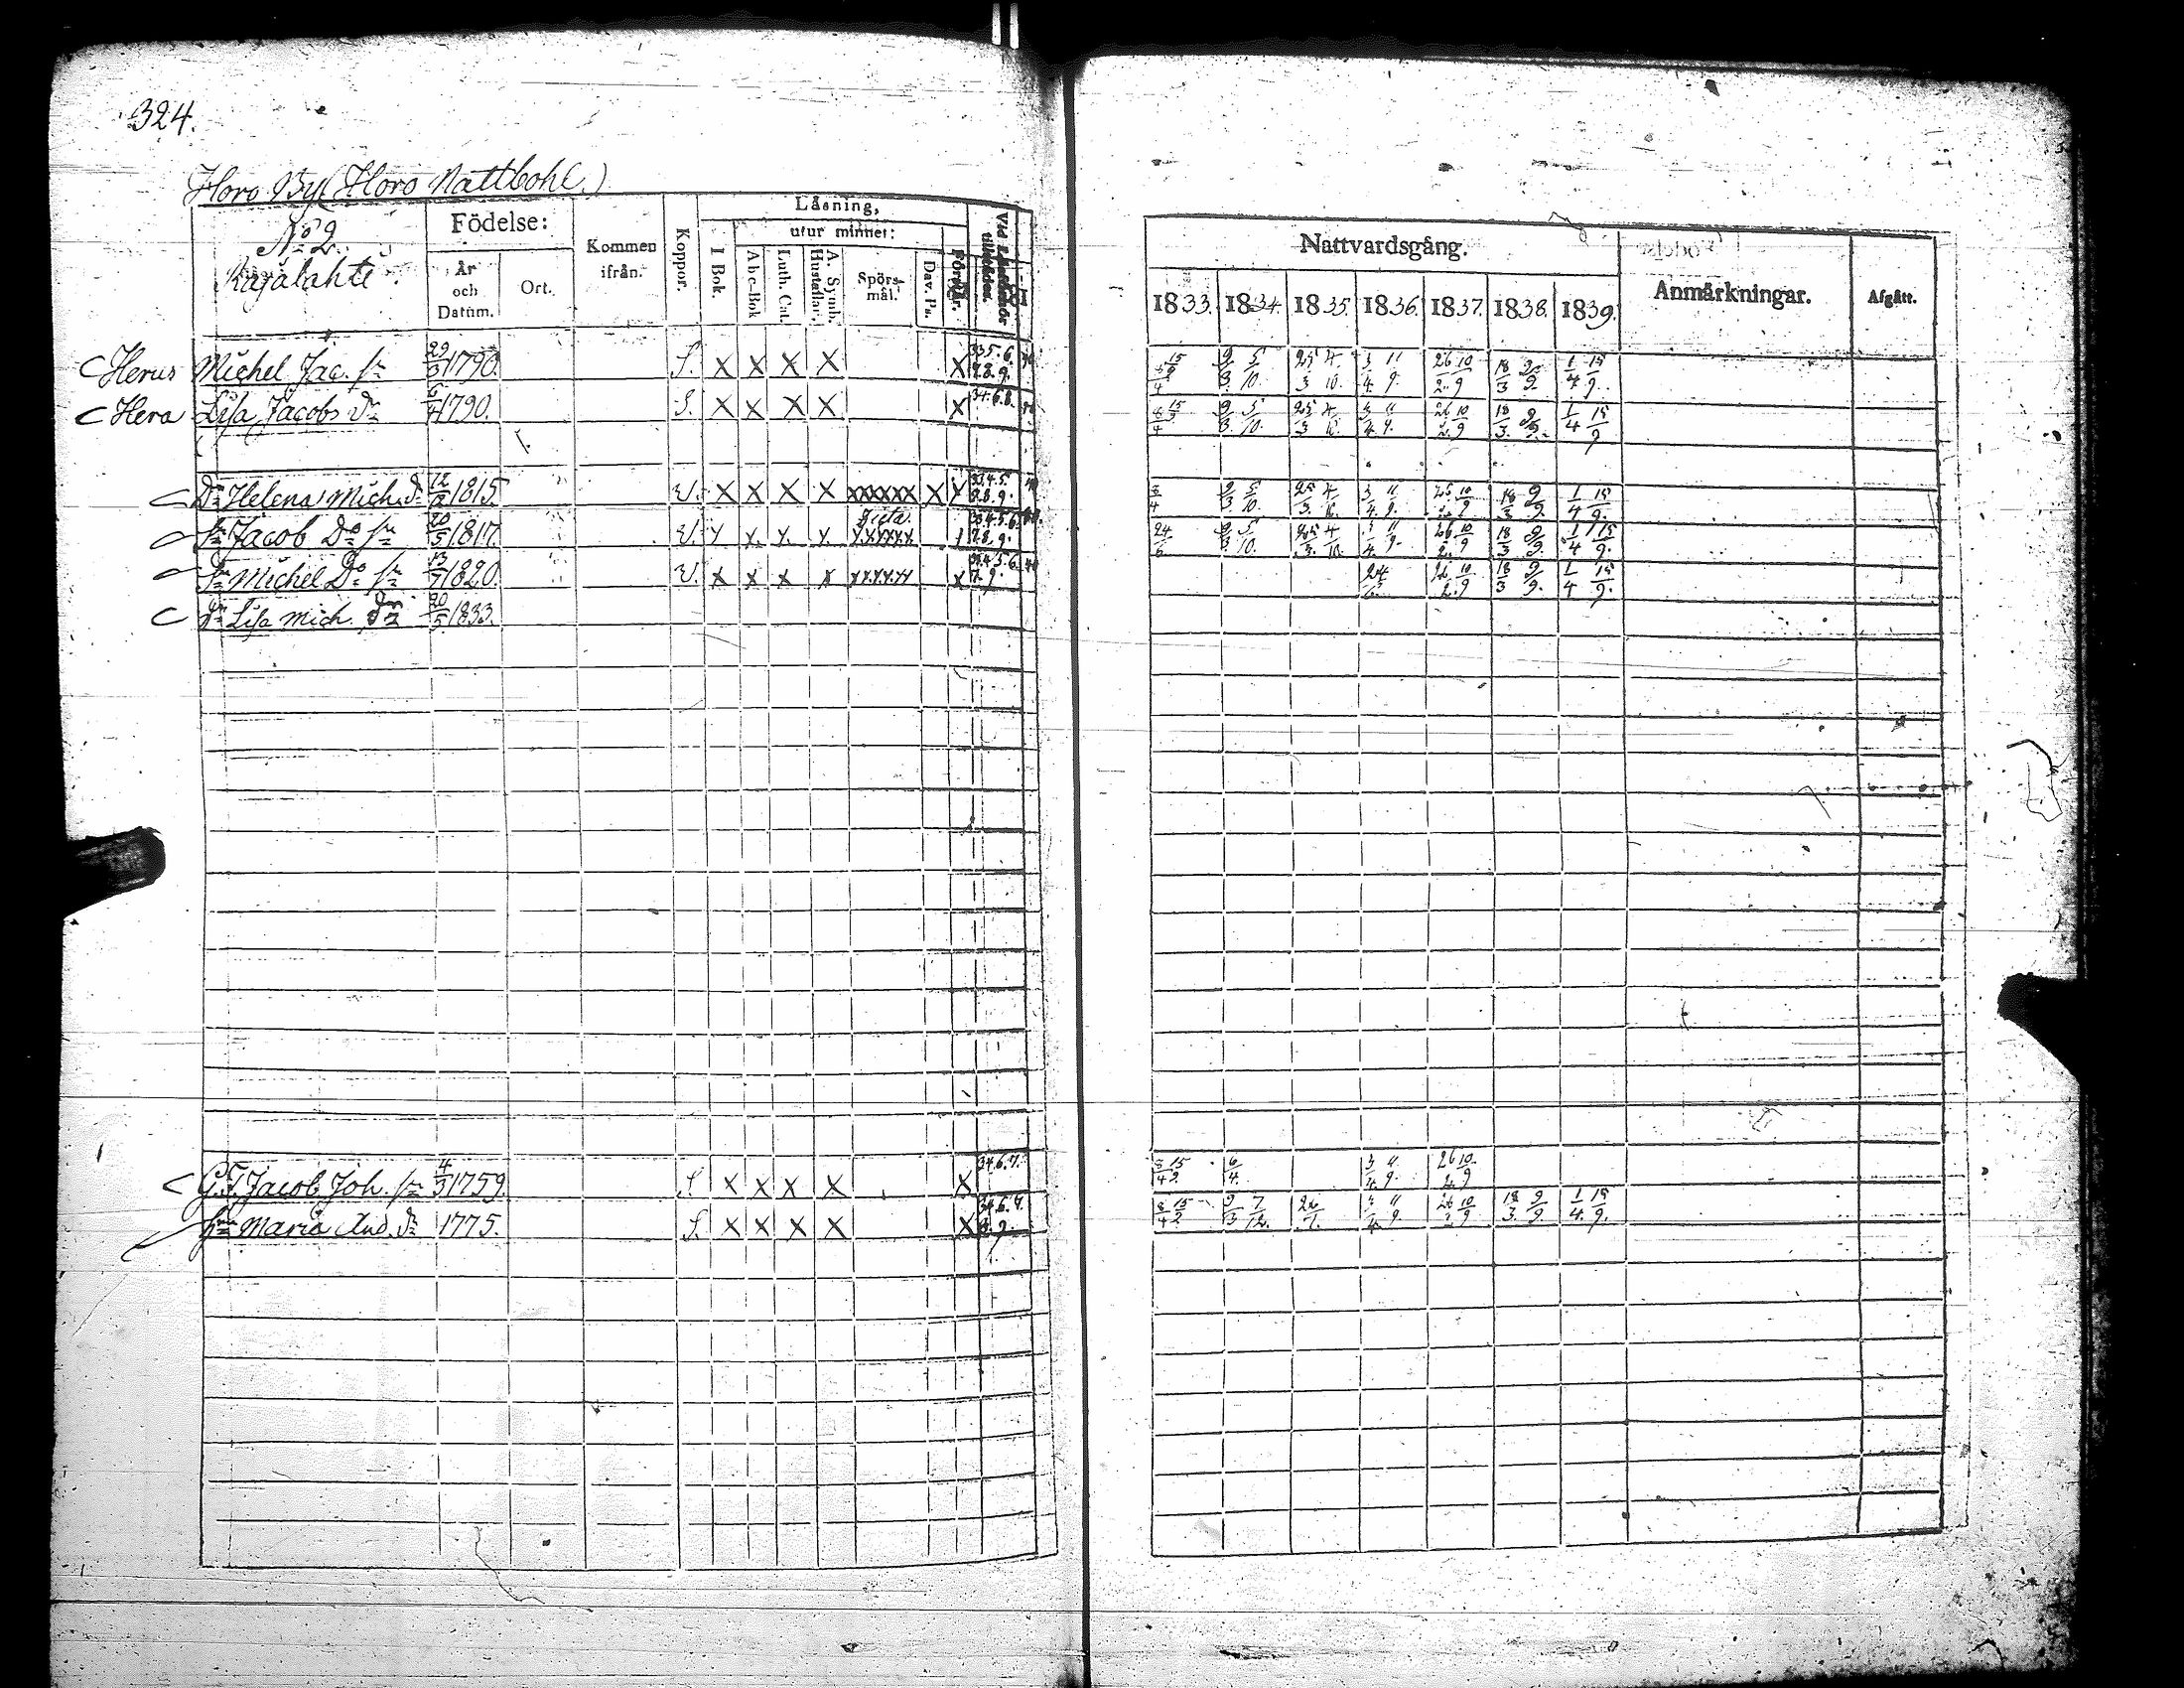 324.
Horo By (Horo Nattbohl.)
No 2. Rajalahti
Födelse: År och Datum. Ort. Kommen ifrån. Koppor. Läsning, I Bok. utur minnet: Abc-Bok Luth. Cat. A. Symb. Hustaflar. Spörsmål. Dav. Ps. Förstår. Vid Läseförhör tillstädes.
Nattvardsgång. Anmärkningar. Afgått.
1833. 1834. 1835. 1836. 1837. 1838. 1839.
Herus Michel Jac. sn 29/3 1790. S. X X X X X 33.5.6. 7.8.9. 9/3 5/10. 25/3 4/10. 3/4. 11/9. 26/2. 10/9 18/3 9/9. 1/4 15/9.
Hera Lisa Jacobs dr 6/4 1790. S. X X X X X 34.6.8. 9/3. 5/10. 25/3 4/10. 3/4. 11/9. 26/2. 10/9 18/3. 9/9. 1/4 15/9
Dr Helena Mich. dr 12/2 1815. V. X X X X XXXXXX X X 33.4.5. 6.8.9. 3/4 9/3 5/10. 25/3 4/10. 3/4. 11/9. 10/9 18/3 9/9. 1/4 15/9.
Sn Jacob Do sn 20/5 1817. V. x x. x. x. x.x.x.x.x.x 33.4.5.6. 7.8.9. 24/6 9/3. 5/10. 25/3. 4/10. 3/4. 11/9. 26/2. 10/9 18/3 9/9. 1/4 15/9.
Sn Michel Do sn 13/7 1820. V. x x x x x.x.x.x.x x 7.9. 24/6. 26/2. 10/9 18/3 9/9. 1/4 15/9.
Dr Lisa Mich. dr 20/5 1833.
G.F. Jacob Joh. sn 4/3 1759. S X X X X X 34.6.7. 3/4 15/9. 6/4. 3/4. 11/9. 26/2. 10/9
Hu Maria And. dr 1775. S. X X X X X 34.6.7. 8.9. 3/4 15/9. 9/3 7/12. 3/4. 11/9. 26/2. 10/9 18/3. 9/9. 1/4. 15/9.